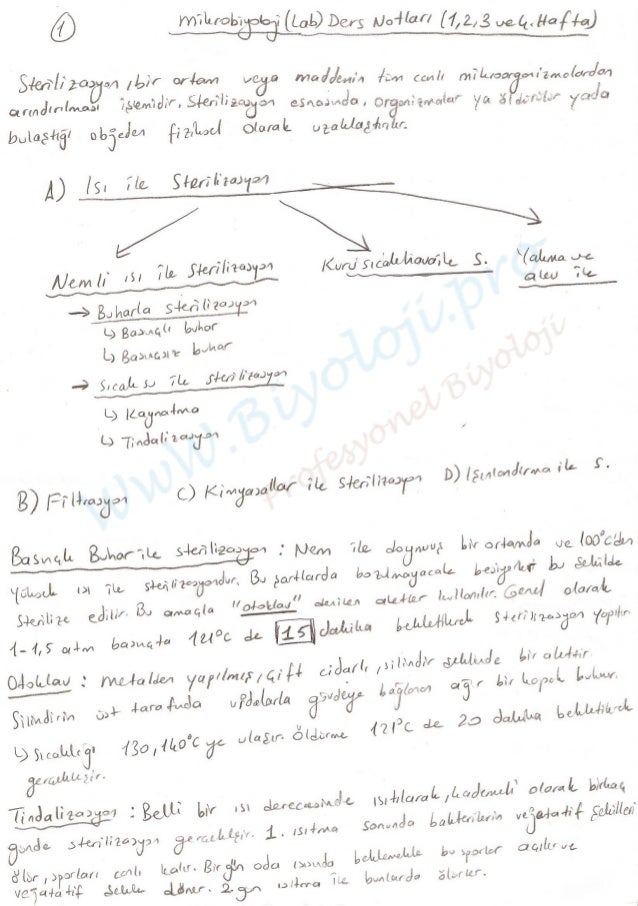 1
mikrobiyoloji (Lab) Ders Notları (1,2,3 ve 4. Hafta)
Sterilizasyon, bir ortam veya maddenin tüm canlı mikroorganizmalardan
arındırılması işemidir. Sterilizasyon esnasında, organizmalar ya öldürülür yada
bulaştığı objeden fiziksel olarak uzaklaştırılır.
A) Isı ile Sterilizasyon
Nemli ısı ile Sterilizasyon
Kuru sıcak hava ile S.
Yakma ve
alev ile
→ Buharla sterilizasyon
↳ Basınçlı buhar
↳ Basınçsız buhar
→ Sıcak su ile sterilizasyon
↳ Kaynatma
↳ Tindalizasyon
B) Filtrasyon
C) Kimyasallar ile Sterilizasyon
D) Işınlandırma ile S.
www.Biyoloji.pro
profesyonel Biyoloji
Basınçlı Buhar ile sterilizasyon : Nem ile doymuş bir ortamda ve 100°C'den
Yüksek ısı ile sterilizasyondur. Bu şartlarda bozulmayacak besiyerleri bu şekilde
sterilize edilir. Bu amaçla "otoklav" denilen aletler kullanılır. Genel olarak
1-1,5 atm basınçta 121°C de 15 dakika bekletilerek sterilizasyon yapılır.
Otoklav : metalden yapılmış, çift cidarlı, silindir şeklinde bir alettir.
Silindirin üst tarafında vidalarla gövdeye bağlanan ağır bir kapak bulunur.
↳ Sıcaklığı 130, 140°C ye ulaşır. Öldürme 121°C de 20 dakika bekletilerek
gerçekleşir.
Tindalizasyon : Belli bir ısı derecesinde ısıtılarak, kademeli olarak birkaç
günde sterilizasyon gerçekleşir. 1. ısıtma sonunda bakterilerin vejatatif şekilleri
ölür, sporları canlı kalır. Bir gün oda ısısında beklemekle bu sporlar açılır ve
vejatatif şekle döner. 2. gün ısıtma ile bunlarda ölürler.